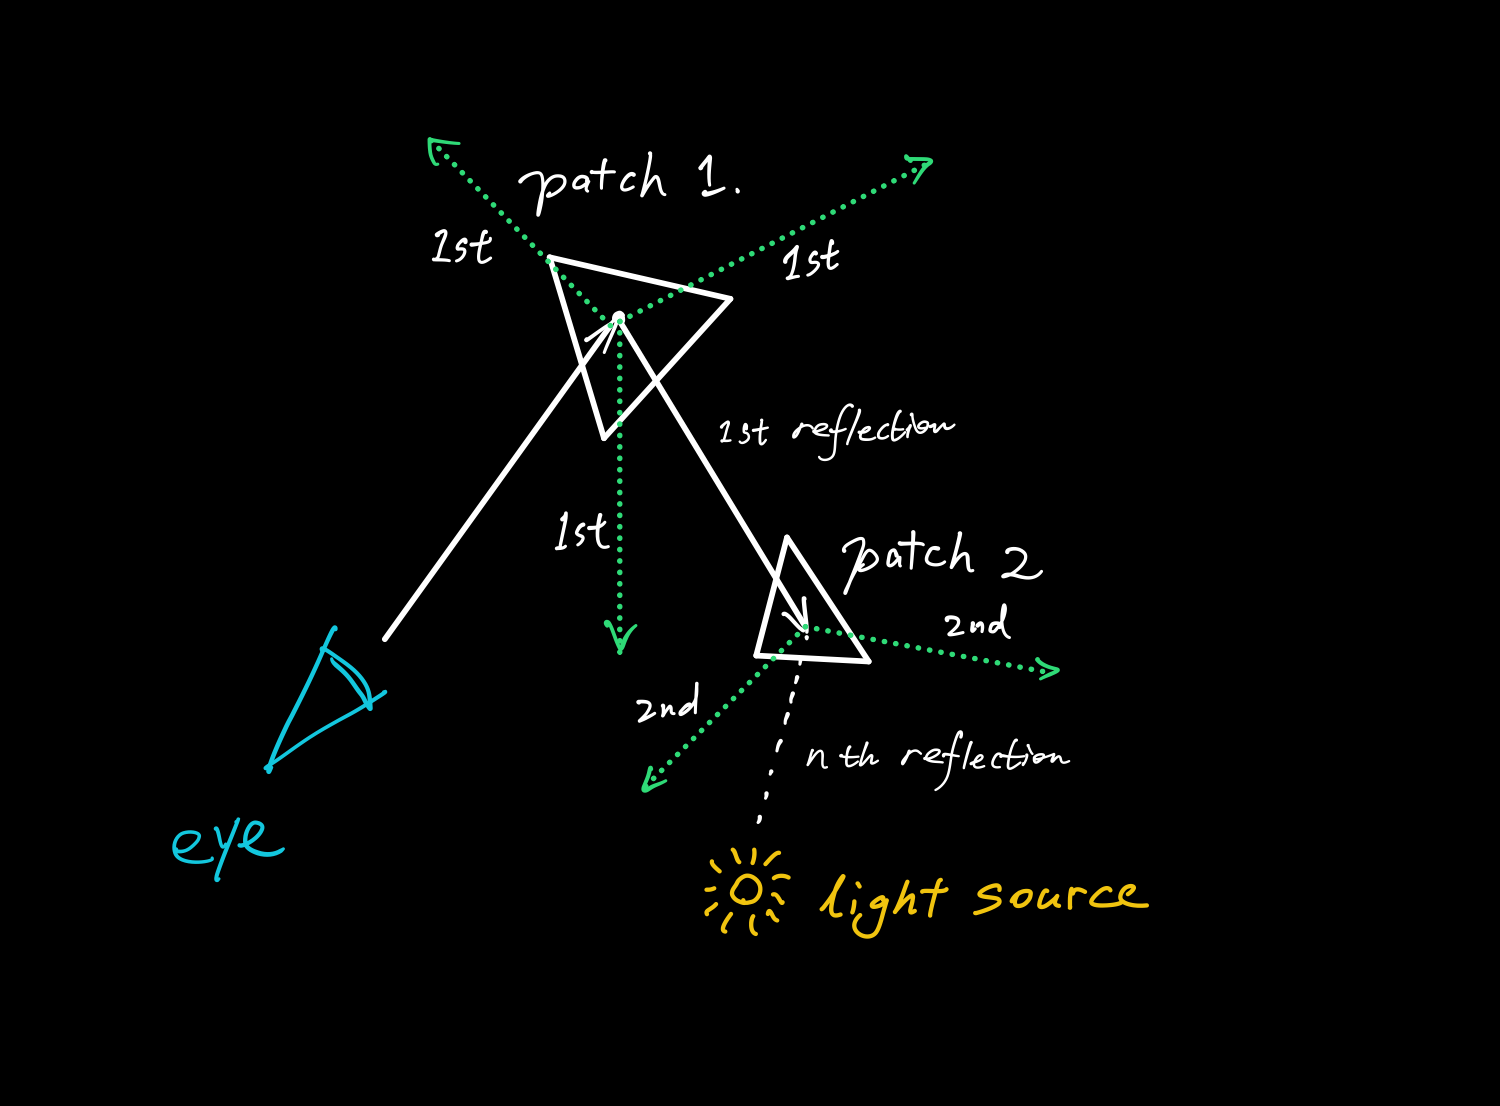 patch 1.
1st
1st
1st reflection
1st
patch 2
2nd
2nd
nth reflection
eye
light source